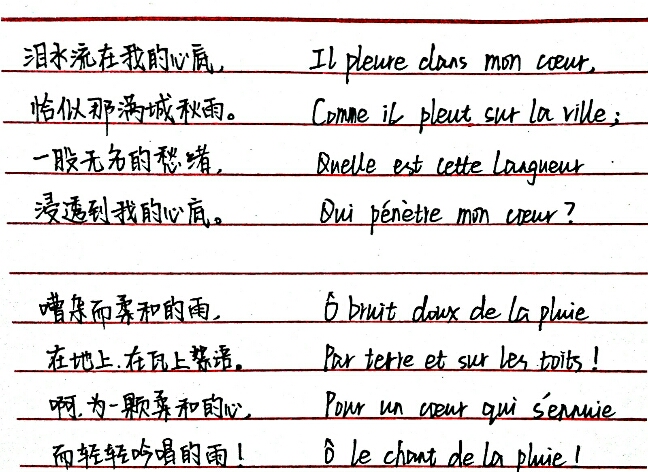 泪水流在我的心底, Il pleure dans mon cœur,
恰似那满城秋雨。 Comme il pleut sur la ville;
一股无名的愁绪, Quelle est cette langueur
浸透到我的心底。 Qui pénètre mon cœur?
嘈杂而柔和的雨, Ô bruit doux de la pluie
在地上、在瓦上絮语。 Par terre et sur les toits!
啊,为一颗柔和的心, Pour un cœur qui s'ennuie
而轻轻吟唱的雨! Ô le chant de la pluie!